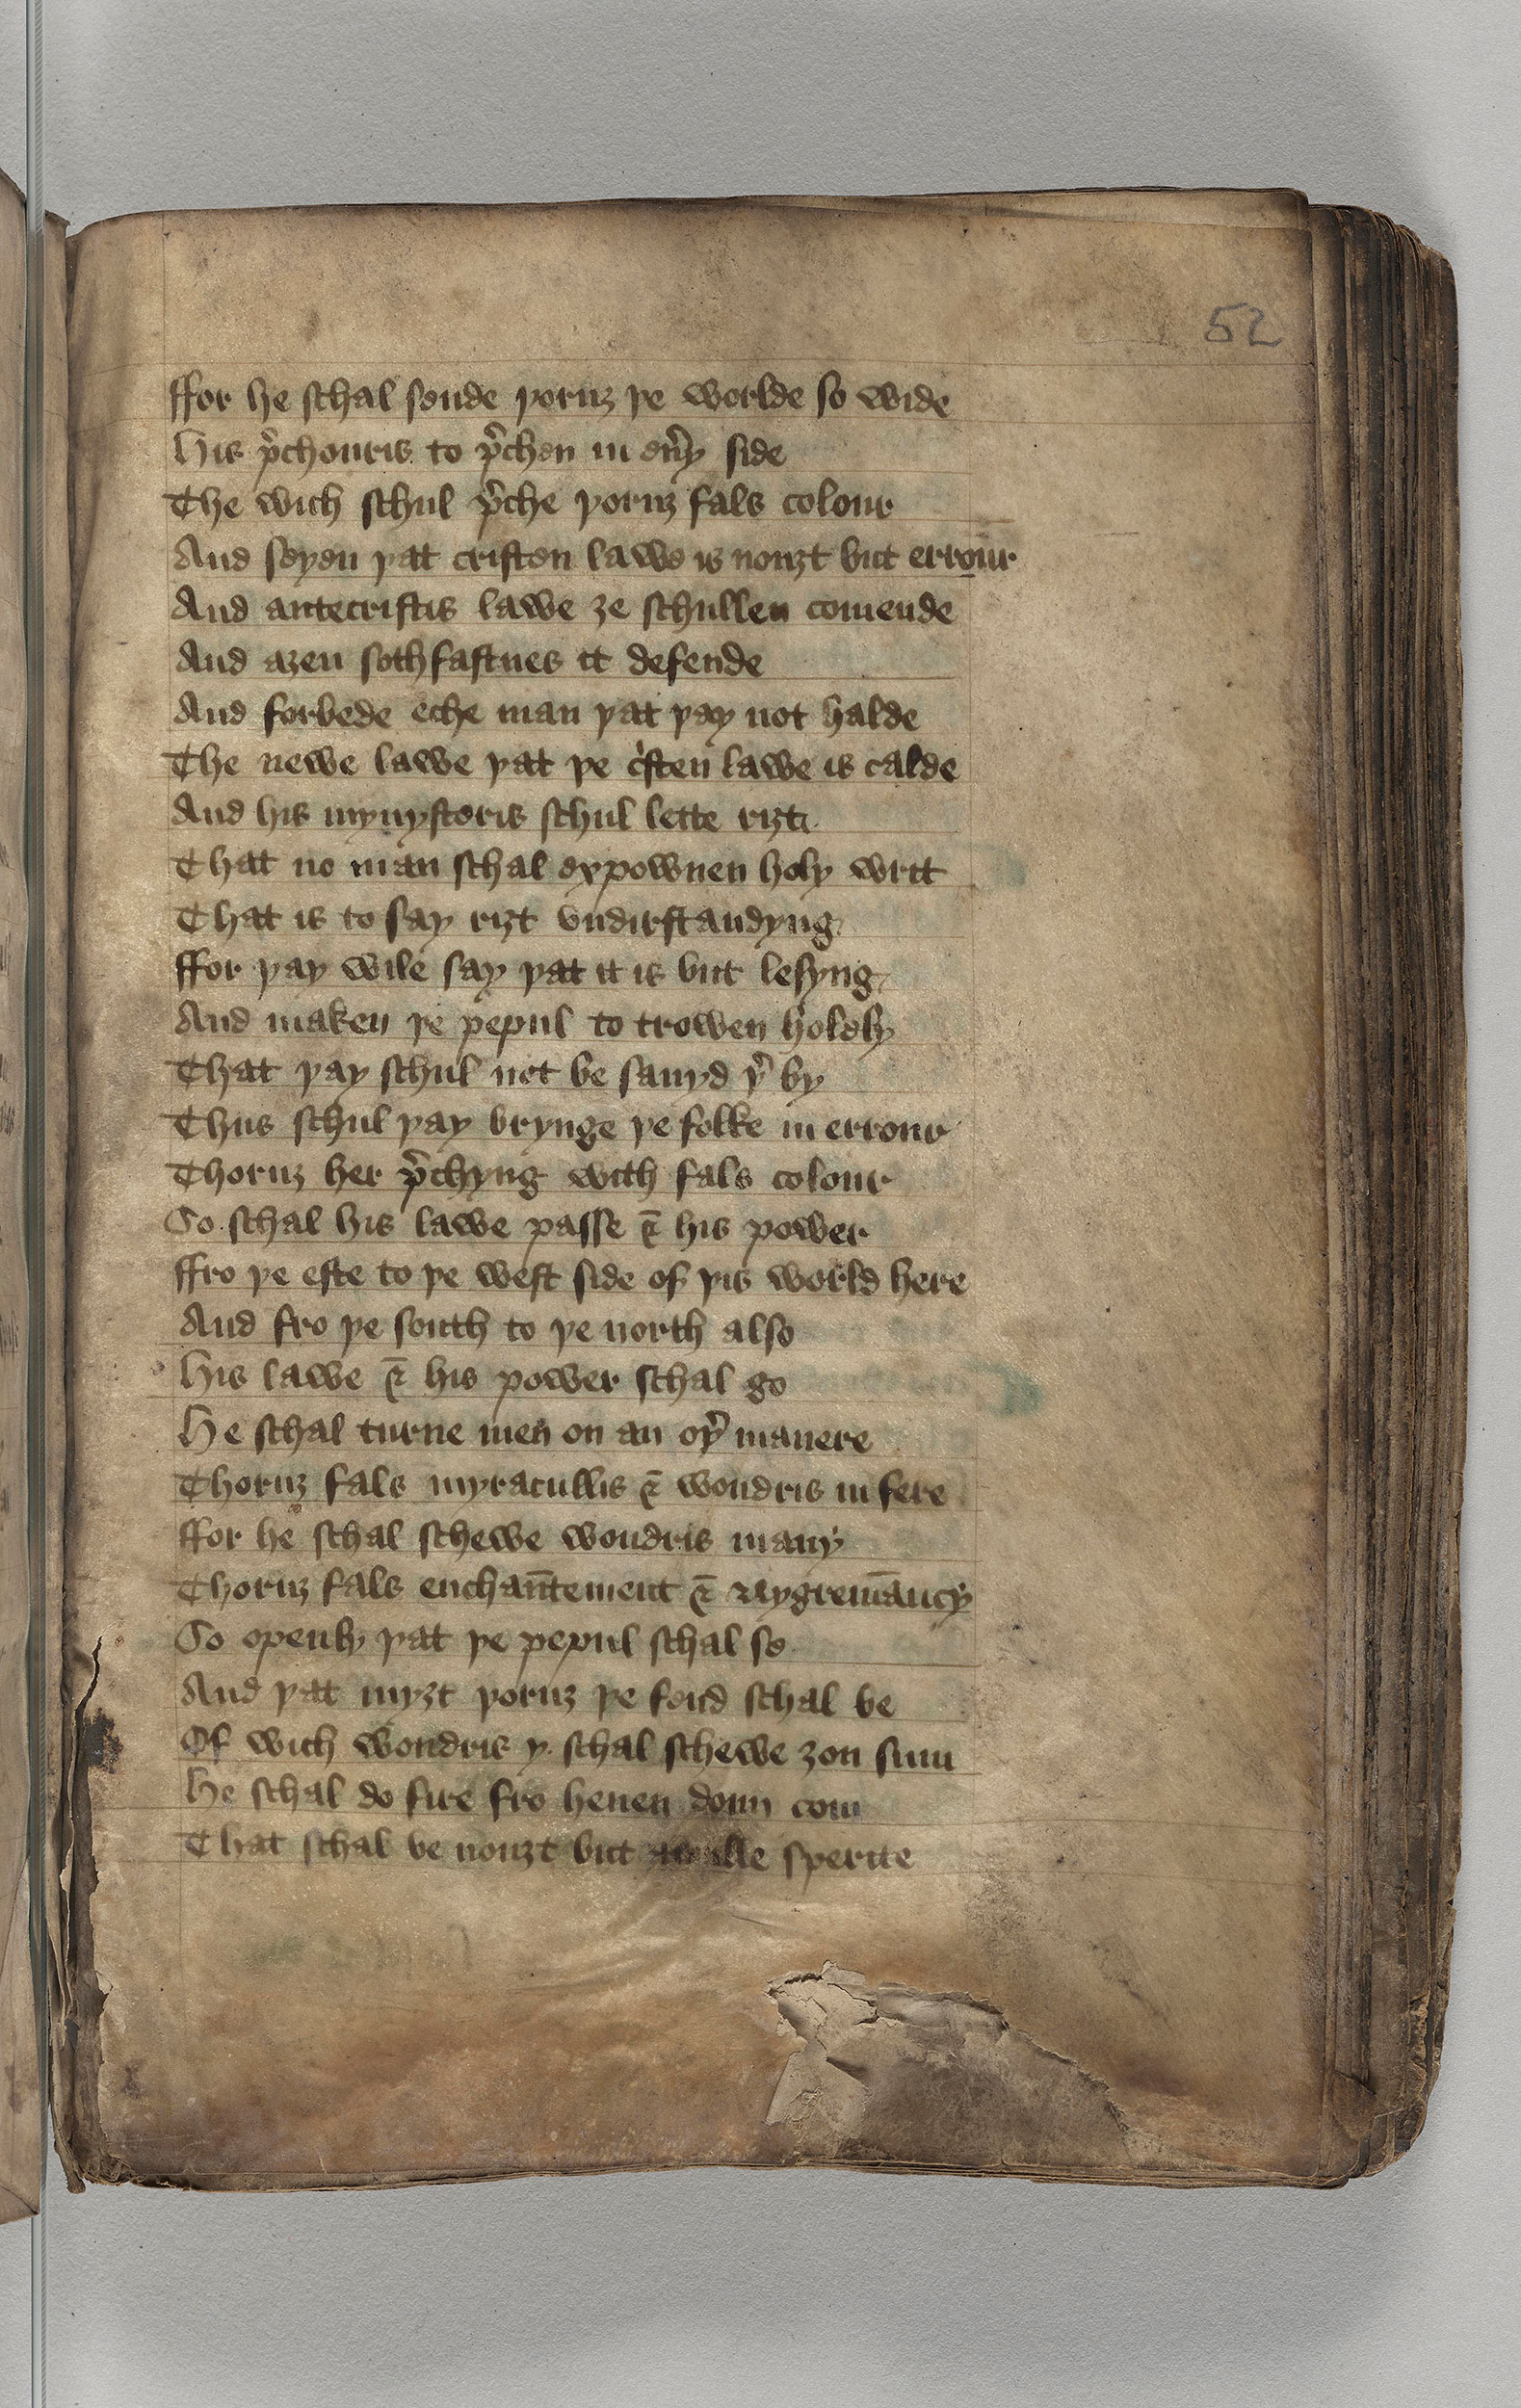 52
ffor he schal sende þoruȝ þe worlde so wide
His p̉chouris to p̉chen in eủy side
The wich schul p̉che þoruȝ fals colour
And seyen þat cristen lawe is nouȝt but errour
And antecristis lawe ȝe schullen comende
And aȝen sothfastnes it defende
And forbede eche man þat þay not halde
The newe lawe þat þe cⁱsten lawe is calde
And his mynysteris schul lette riȝt
That no man schal expownen holy writ
That is to say riȝt vndirstandyng
ffor þay wile say þat it is but lesyng
And maken þe pepul to trowen holdly
That þay schul not be sauyd þ̉ by
Thus schul þay brynge þe folke in errour
Thoruȝ her p̉chyng with fals colour
So schal his lawe passe & his power
ffro þe este to þe west side of þis world here
And fro þe south to þe north also
His lawe & his power schal go
He schal turne men on an oþ̉ manere
Thoruȝ fals myracullis & wondris in fere
ffor he schal schewe wondris many
Thoruȝ fals enchan̄tement & nygremāncy
So openly þat þe pepul schal se
And þat myȝt þoruȝ þe fend schal be
Of wich wondris y schal schewe ȝou sum
He schal do fire fro heuen doun com
That schal be nouȝt but sperite